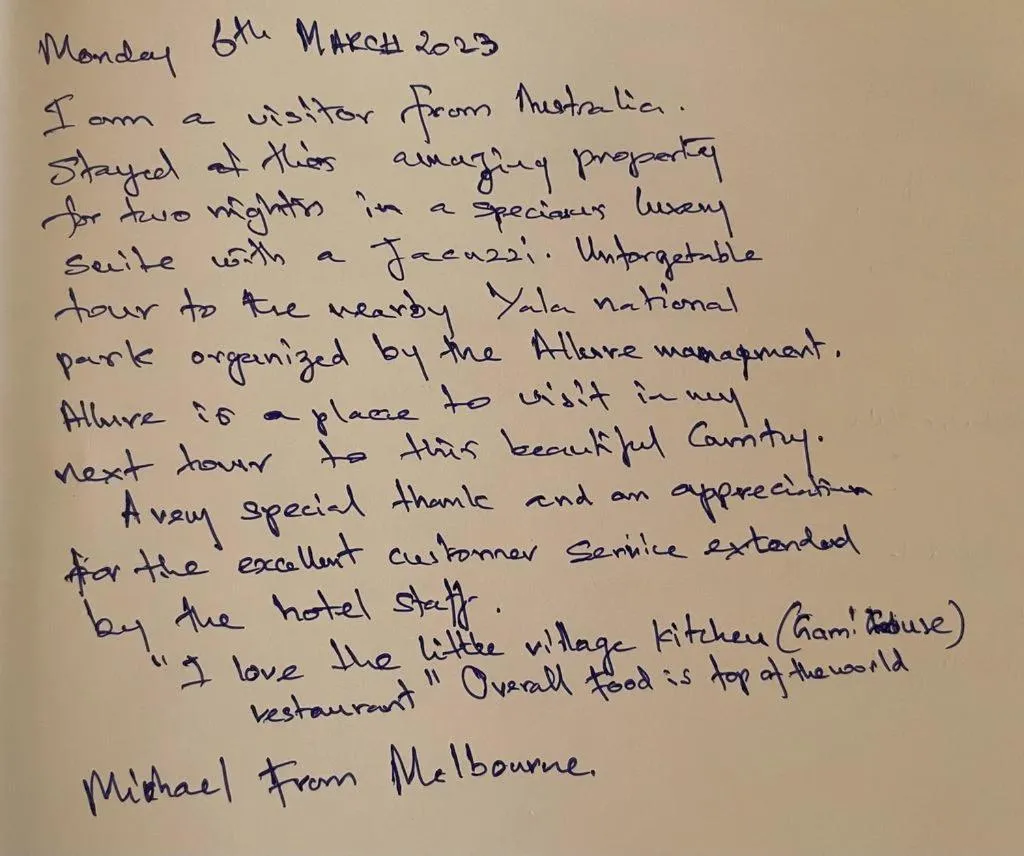 Monday 6th MARCH 2023
I am a visitor from Australia.
Stayed at this amazing property
for two nights in a specious luxury
suite with a Jacuzzi. Unforgetable
tour to the nearby Yala national
park organized by the Allure managment.
Allure is a place to visit in my
next tour to this beautiful Country.
A very special thank and an appreciation
for the excellent customer service extended
by the hotel staff.
"I love the little village kitchen (Gami House)
restaurant" Overall food is top of the world
Michael From Melbourne.